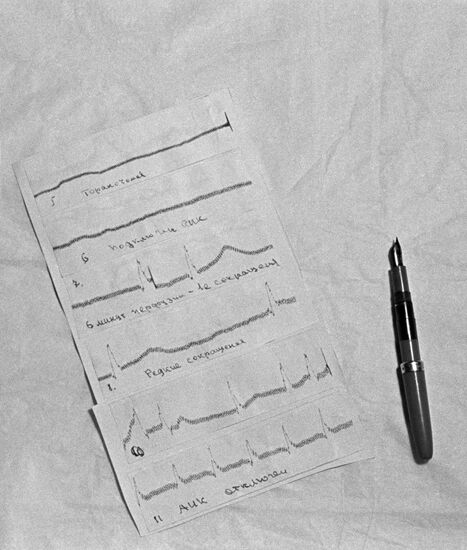 5 Торакотомия
6 Подключен АИК
7.
6 минут перфузии - 1е сокращения
8.
Редкие сокращения
10
11 АИК отключен